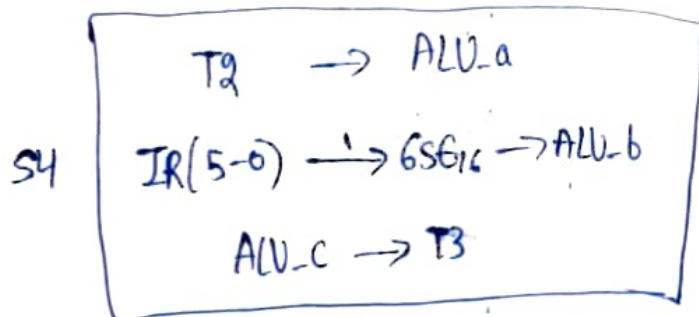 T2 → ALU_a
S4 IR(5-0) → 6SE16 → ALU_b
ALU_C → T3